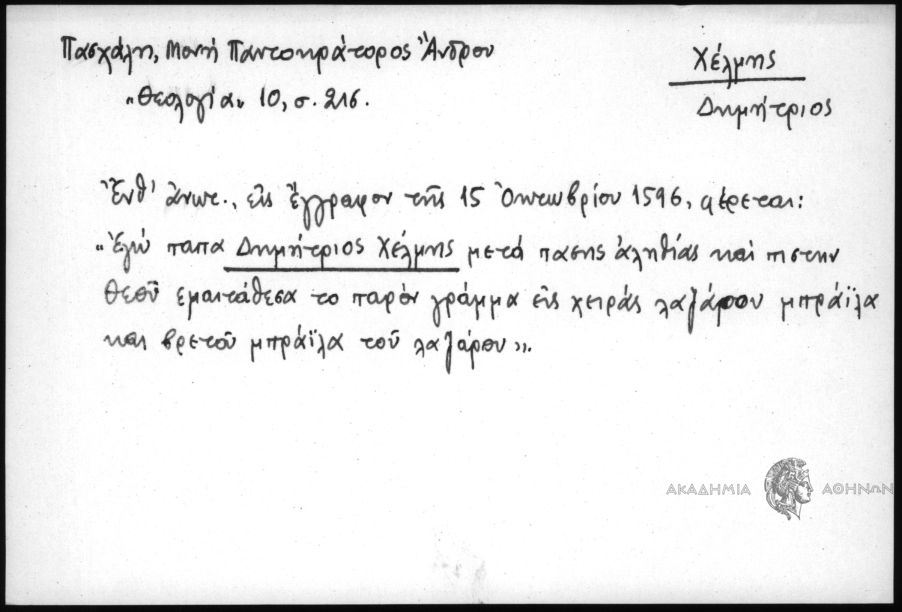 Πασχάλη, Μονή Παντοκράτορος Ἄνδρου
Χέλμης
«Θεολογία» 10, σ. 216.
Δημήτριος
Ἔνθ' ἀνωτ., εἰς ἔγγραφον τῆς 15 Ὀκτωβρίου 1596, φέρεται:
«Ἐγώ παπα Δημήτριος Χέλμης μετά πασης ἀληθίας καὶ πιστην
θεοῦ εματάθεσα το παρόν γράμμα εἰς χειράς λαζάρου μπράϊλα
και βρετοῦ μπράϊλα τοῦ λαζάρου».
ΑΚΑΔΗΜΙΑ ΑΘΗΝΩΝ